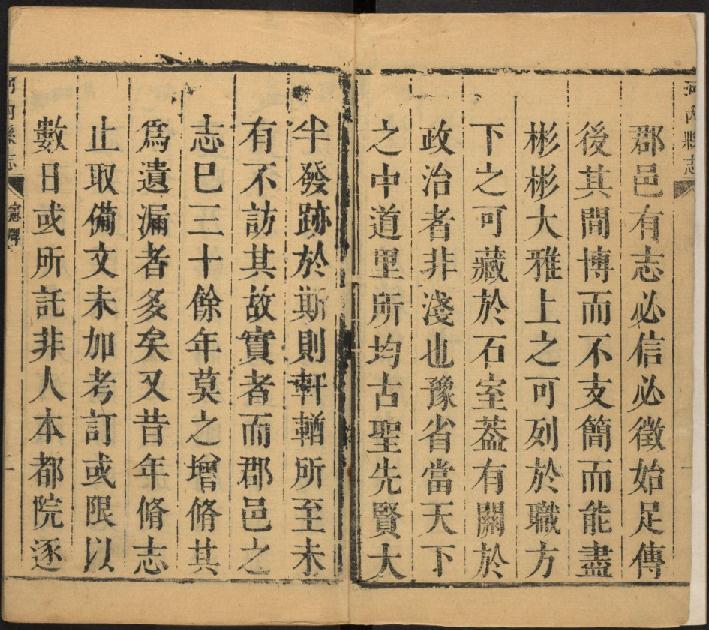 河內縣志
郡邑有志必信必徵始足傳
後其間博而不支簡而能盡
彬彬大雅上之可列於職方
下之可藏於石室葢有關於
政治者非淺也豫省當天下
之中道里所均古聖先賢大
半發跡於斯則軒輶所至未
有不訪其故實者而郡邑之
志已三十餘年莫之增脩其
爲遺漏者多矣又昔年脩志
止取備文未加考訂或限以
數日或所託非人本都院逐
河內縣志
一